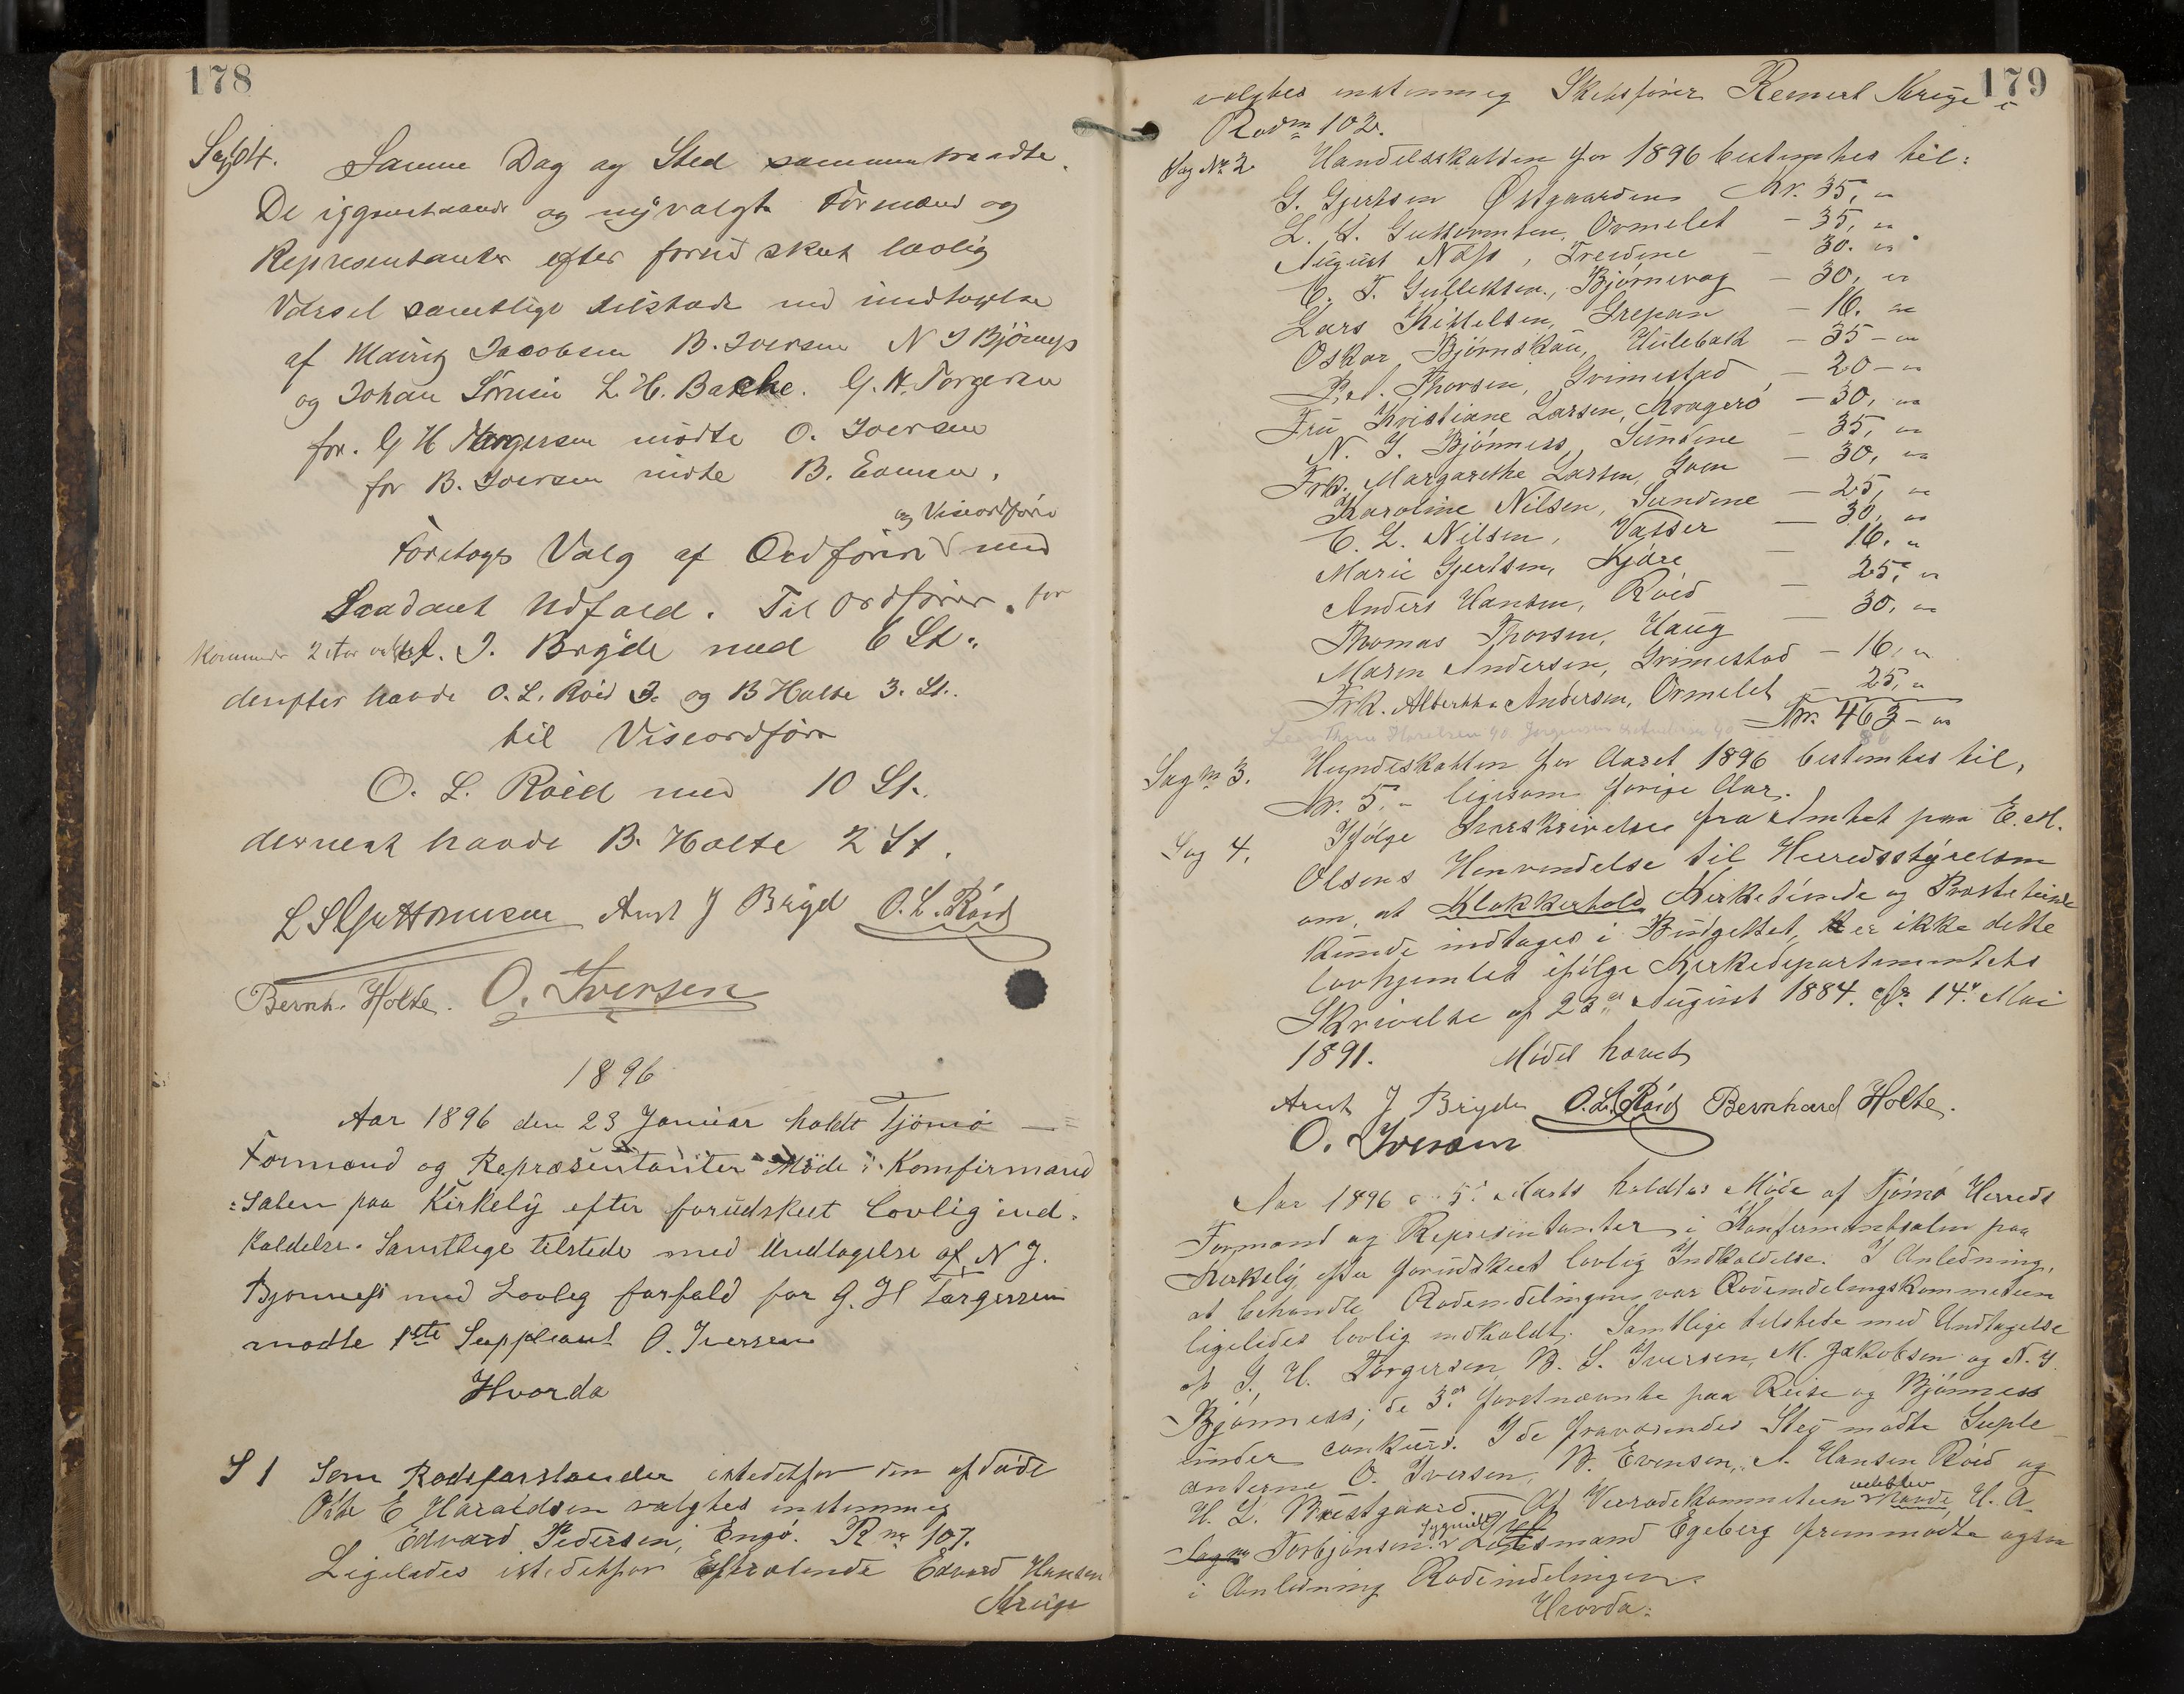 178
Sag 4. Samme Dag og Sted sammentraadte
De iggenstaaende og nÿvalgte Formænd og
Representanter efter forud skeet lovlig
Varsel samtlige tilstæde med undtagelse
af Mauritz Jacobsen B. Iversen N J Bjönnes
og Johan Sörensen L. H. Bakke. G. H. Torgersen
for. G H Torgersen mödte O. Iversen
for B. Iversen mödte B. Evensen.
og Viseordförer
Foretoges Valg af Ordförer med
Saadant Udfald. Til Ordförer for
kommende 2 Aar valgtes A. J. Bryde med 6 St.
derefter havde O. L. Röed 3. og B Holte 3. St.
til Viseordförer
O. L. Röed med 10 St.
dernest havde B. Holte 2 St.
L S Guttormsen Arnt J Bryde O. L. Röed
Bernh. Holte. O. Iversen
1896
Aar 1896 den 23 Januar holdt Tjömö
Formænd og Repræsentanter Möde i Komfirmand
Salen paa Kirkelÿ efter forudskeet Lovlig ind-
kaldelse. Samtlige tilstede med Undtagelse af N J.
Bjonness med Lovleg forfald for G. H Torgersen
modte 1ste Suppleant O. Iversen
Hvorda
S 1 Som Rodeforstander istedetfor den afdöde
Otto E Haraldsen valgtes enstemmig
Edvard Pedersen, Engö. R no 107.
Ligeledes istedetfor Eftralende Edvard Hansen
Kruge
179
valgtes enstemmig Skibsförer Reinert Kruge i
Rode no 102.
Sag No 2. Handelsskatten for 1896 bestemtes til:
G. Gjertsen Østgaarden Kr. 35, "
L. S. Guttormsen, Ormelet - 35, "
August Næss, Treidene - 30. "
C. F. Gulliksen, Bjørnevag - 30, "
Lars Kittelsen, Grepan - 16. "
Oskar Bjørnskau, Hulebakk - 35 - "
P. A. Thorsen, Grimestad - 20 - "
Fru Kristiane Larsen, Kragerö - 30, "
N. J. Bjönness, Sundene - 35, "
Frk. Margarethe Larsen, Goen - 30, "
Karoline Nilsen, Sundene - 25, "
C. L. Nilsen, Vasser - 30, "
Marie Gjertsen, Kjære - 16. "
Anders Hansen, Röed - 25, "
Thomas Thorsen, Haug - 30, "
Maren Andersen, Grimestad - 16, "
Frk. Alberthe Andersen, Ormelet - 25, "
Kr. 463 - "
Sag no 3. Hundeskatten for Aaret 1896 bestemtes til,
Kr. 5. - ligesom forige Aar.
Sag 4. Ifölge Svarskrivelse fra Amtet paa E. M.
Olsens Henvendelse til Herredsstÿrelsen
om, at Klokkerhold, Kirketiende og Prestetiende
kunde indtages i Budgettet, er ikke dette
lovhjemlet ifölge Kirkedepartementets
Skrivelse af 23de August 1884. Cfr. 14de Mai
1891. Mödet hævet
Arnt J Bryde O. L. Röed Bernhard Holte.
O. Iversen
Aar 1896 5te Marts holdtes Möde af Tjömö Herreds
Formænd og Representanter i Konfirmantsalen paa
Kirkelÿ efter forudskeet lovlig Indkaldelse. I Anledning,
at behandle Rodeindelingen var Rodeindelingskommiteen
ligeledes lovlig indkaldt. Samtlige tilstede med Undtagelse
af G. H. Torgersen, B. S. Iversen, M. Jakobsen og N. J.
Bjönness; de 3de förstnævnte paa Reise og Bjönness
under conkurs. I de fraværendes Sted mödte Suple-
anterne O. Iversen, B. Evensen, A. Hansen Röed og
H. L. Bræstgaard. Af Veirodekommiteen udeblev havde H. A.
Sag no Torbjönsen. Sygmeldt Lensmand Egeberg fremmödte ogsaa
i Anledning Rodeindelingen.
Hvorda: